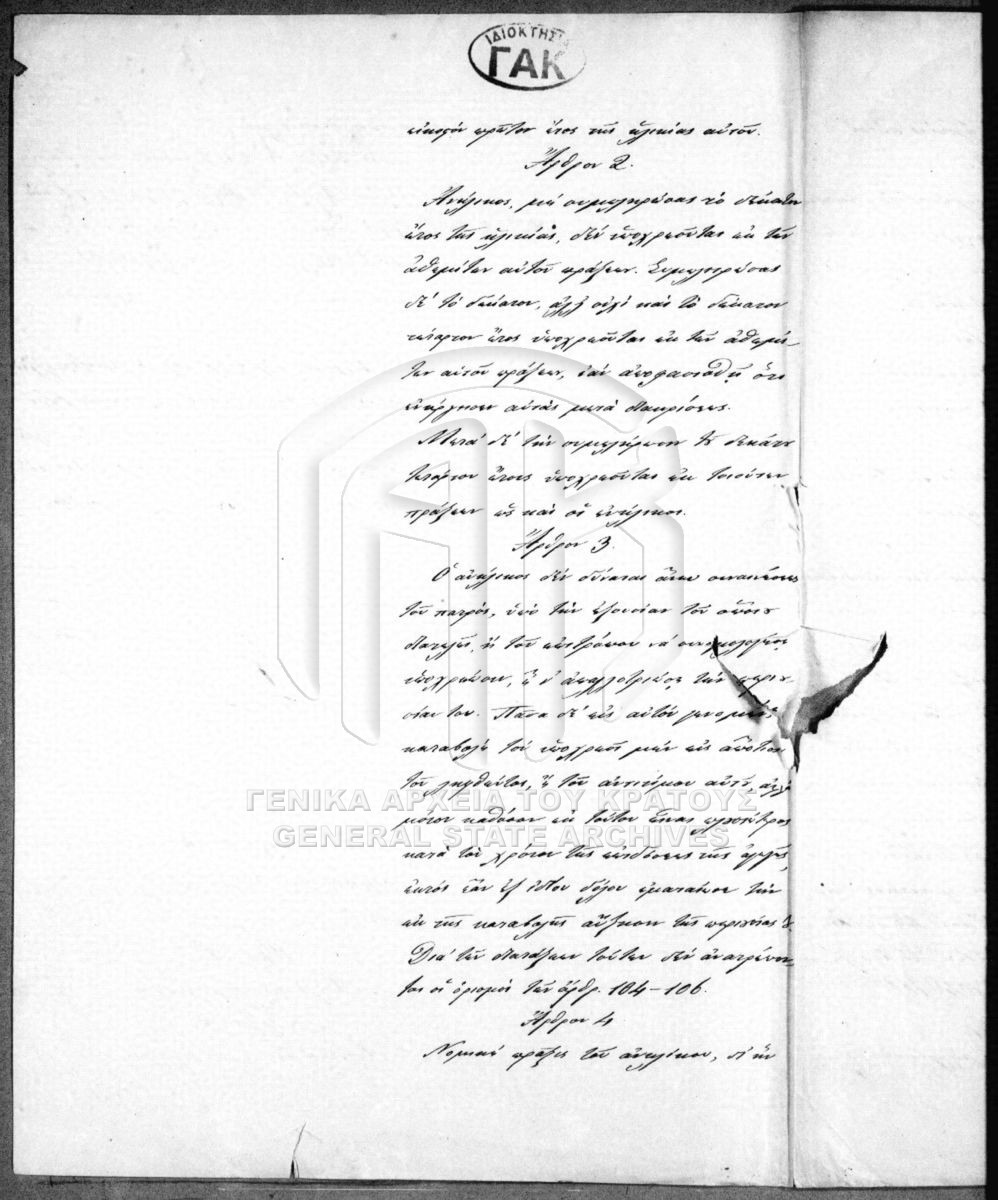 ΙΔΙΟΚΤΗΣΙΑ
ΓΑΚ
εἰκοστὸν πρῶτον ἔτος τῆς ἡλικίας αὐτοῦ.
Ἄρθρον 2.
Ἀνήλικος, μὴ συμπληρώσας τὸ δέκατον
ἔτος τῆς ἡλικίας, δὲν ὑποχρεοῦται ἐκ τῶν
ἀθεμίτων αὐτοῦ πράξεων. Συμπληρώσας
δὲ τὸ δέκατον, ἀλλ' οὐχὶ καὶ τὸ δέκατον
τέταρτον ἔτος ὑποχρεοῦται ἐκ τῶν ἀθεμί
των αὐτοῦ πράξεων, ἐὰν ἀποφασισθῇ ὅτι
ἐνήργησεν αὐτὰς μετὰ διακρίσεως.
Μετὰ δὲ τὴν συμπλήρωσιν τοῦ δεκάτου
τετάρτου ἔτους ὑποχρεοῦται ἐκ τοιούτων
πράξεων ὡς καὶ οἱ ἐνήλικοι.
Ἄρθρον 3.
Ὁ ἀνήλικος δὲν δύναται ἄνευ συναινέσεως
τοῦ πατρός, ὑπὸ τὴν ἐξουσίαν τοῦ ὁποίου
διατελεῖ, ἢ τοῦ ἐπιτρόπου νὰ συνομολογήσῃ
ὑποχρέωσιν, ἢ ν' ἀπαλλοτριώσῃ τὴν περιου
σίαν του. Πᾶσα δὲ εἰς αὐτὸν γενομένη
καταβολὴ τὸν ὑποχρεοῖ μὲν εἰς ἀπόδοσιν
τοῦ ληφθέντος, ἢ τοῦ ἀντιτίμου αὐτοῦ, ἀλλὰ
μόνον καθόσον ἐκ τούτου εἶναι πλουσιώτερος
κατὰ τὸν χρόνον τῆς ἐπιδόσεως τῆς ἀγωγῆς,
ἐκτὸς ἐὰν ἐξ ἰδίου δόλου ἐματαίωσε τὴν
ἐκ τῆς καταβολῆς αὔξησιν τῆς περιουσίας του
Διὰ τῶν διατάξεων τούτων δὲν ἀνατρέπον
ται οἱ ὁρισμοὶ τῶν ἄρθρ. 104-106.
Ἄρθρον 4
Νομικὴ πρᾶξις τοῦ ἀνηλίκου, δι' ἣν
ΓΕΝΙΚΑ ΑΡΧΕΙΑ ΤΟΥ ΚΡΑΤΟΥΣ
GENERAL STATE ARCHIVES